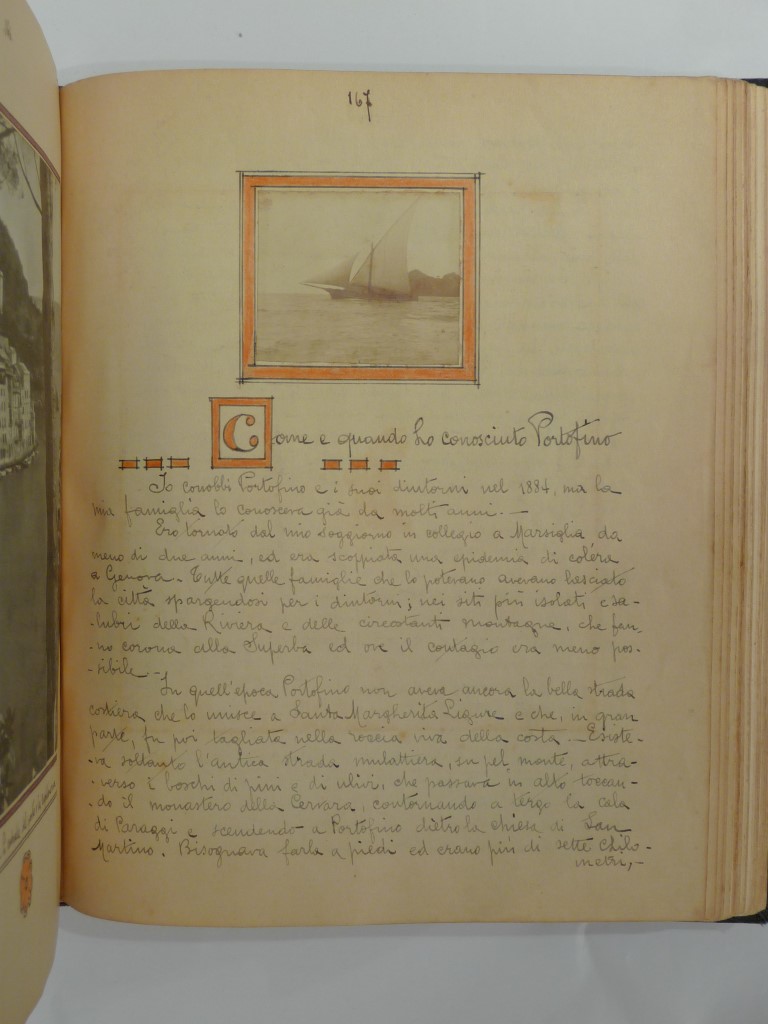 167
Come e quando ho conosciuto Portofino
Io conobbi Portofino e i suoi dintorni nel 1884, ma la
mia famiglia lo conosceva già da molti anni. —
Ero tornato dal mio soggiorno in collegio a Marsiglia da
meno di due anni, ed era scoppiata una epidemia di coléra
a Genova. Tutte quelle famiglie che lo potevano avevano lasciato
la città spargendosi per i dintorni; nei siti più isolati e sa-
-lubri della Riviera e delle circostanti montagne, che fan-
-no corona alla Superba ed ove il contagio era meno pos-
-sibile. —
In quell'epoca Portofino non aveva ancora la bella strada
costiera che lo unisce a Santa Margherita Ligure e che, in gran
parte, fu poi tagliata nella roccia viva della costa — Esiste-
va soltanto l'antica strada mulattiera, su pel monte, attra-
-verso i boschi di pini e di ulivi, che passava in alto toccan-
-do il monastero della Cervara, contornando a tergo la cala
di Paraggi e scendendo a Portofino dietro la chiesa di San
Martino. Bisognava farla a piedi ed erano più di sette chilo-
metri, —